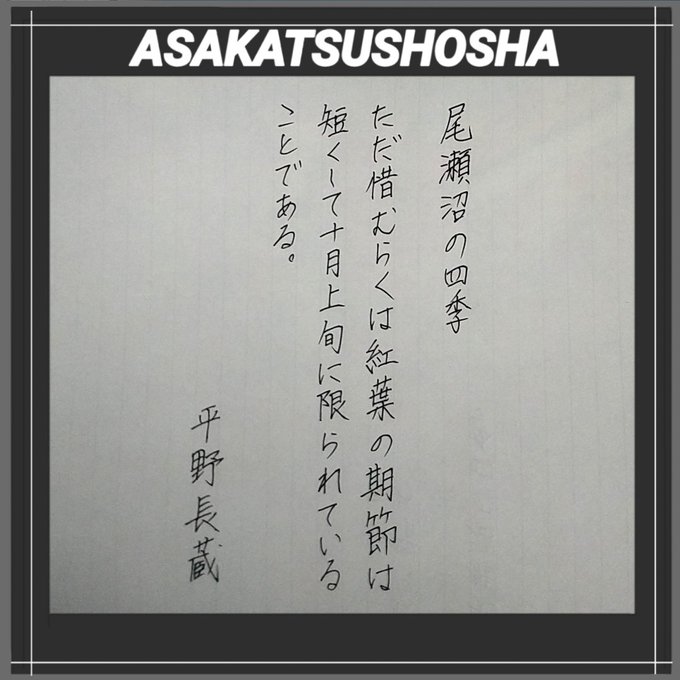 ASAKATSUSHOSHA
尾瀬沼の四季
ただ惜むらくは紅葉の期節は
短くして十月上旬に限られている
ことである。
平野長蔵